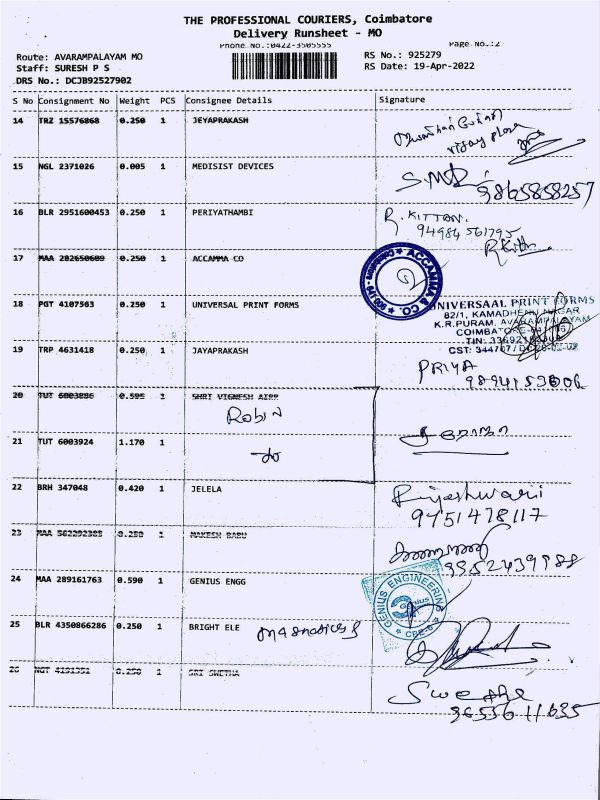 THE PROFESSIONAL COURIERS, Coimbatore
Delivery Runsheet - MO
Phone No.:0422-3505555 Page No.:2
Route: AVARAMPALAYAM MO RS No.: 925279
Staff: SURESH P S RS Date: 19-Apr-2022
DRS No.: DCJB92527902
S No Consignment No Weight PCS Consignee Details Signature
14 TRZ 15576868 0.250 1 JEYAPRAKASH
15 NGL 2371026 0.005 1 MEDISIST DEVICES 9865858257
16 BLR 2951600453 0.250 1 PERIYATHAMBI R. KITTON.
94984 561795
17 MAA 282650609 0.250 1 ACCAMMA CO ACCAMMA & CO.
18 PGT 4107563 0.250 1 UNIVERSAL PRINT FORMS UNIVERSAAL PRINT FORMS
82/1, KAMADHENU NAGAR
K.R.PURAM, AVARAMPALAYAM
COIMBATORE
TIN:
CST:
19 TRP 4631418 0.250 1 JAYAPRAKASH PRIYA
20 TUT 6003886 0.595 1 SHRI VIGNESH AIRP
Robin
21 TUT 6003924 1.170 1
22 BRH 347048 0.420 1 JELELA Rajeshwari
9751478117
23 MAA 562292385 0.250 1 MAKESH BABU
9952439988
24 MAA 289161763 0.590 1 GENIUS ENGG GENIUS ENGINEERING
Genius
25 BLR 4350866286 0.250 1 BRIGHT ELE
26 NGT 4191351 0.250 1 SRI SWETHA Swetha
9655611635